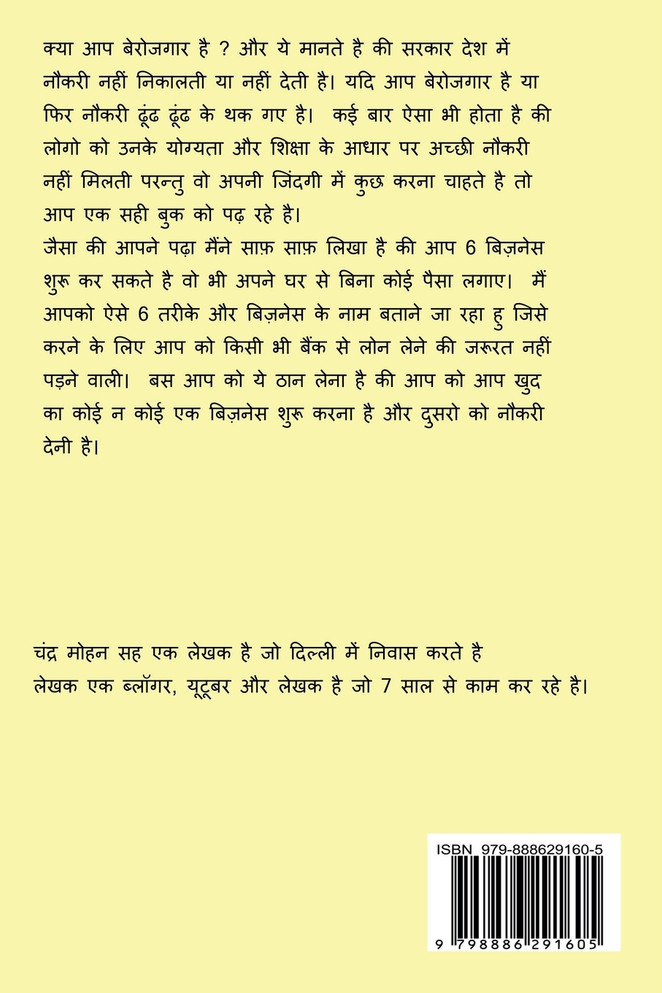 क्या आप बेरोजगार है ? और ये मानते है की सरकार देश में
नौकरी नहीं निकालती या नहीं देती है। यदि आप बेरोजगार है या
फिर नौकरी ढूंढ ढूंढ के थक गए है। कई बार ऐसा भी होता है की
लोगो को उनके योग्यता और शिक्षा के आधार पर अच्छी नौकरी
नहीं मिलती परन्तु वो अपनी जिंदगी में कुछ करना चाहते है तो
आप एक सही बुक को पढ़ रहे है।
जैसा की आपने पढ़ा मैंने साफ़ साफ़ लिखा है की आप 6 बिज़नेस
शुरू कर सकते है वो भी अपने घर से बिना कोई पैसा लगाए। मैं
आपको ऐसे 6 तरीके और बिज़नेस के नाम बताने जा रहा हु जिसे
करने के लिए आप को किसी भी बैंक से लोन लेने की जरूरत नहीं
पड़ने वाली। बस आप को ये ठान लेना है की आप को आप खुद
का कोई न कोई एक बिज़नेस शुरू करना है और दुसरो को नौकरी
देनी है।
चंद्र मोहन सह एक लेखक है जो दिल्ली में निवास करते है
लेखक एक ब्लॉगर, यूटूबर और लेखक है जो 7 साल से काम कर रहे है।
ISBN 979-888629160-5
9 798886 291605